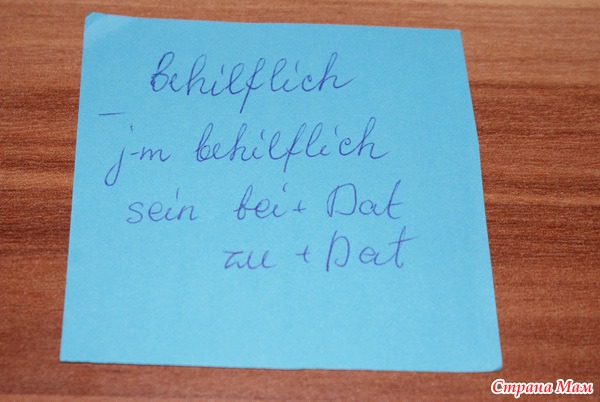 behilflich
– j-m behilflich
sein bei + Dat
zu + Dat
Страна Мам